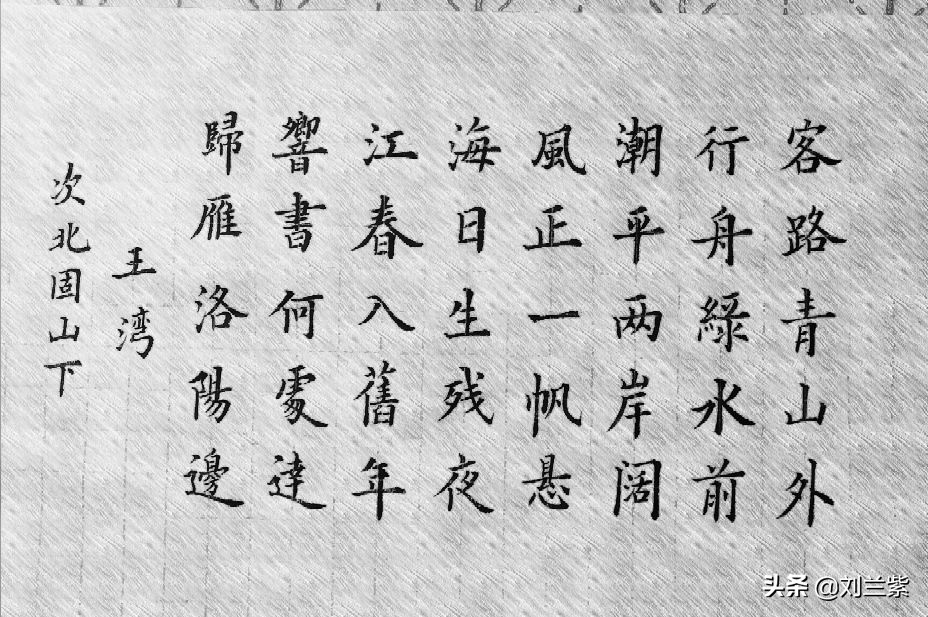 客路青山外
行舟綠水前
潮平两岸阔
風正一帆悬
海日生残夜
江春入舊年
響書何處達
歸雁洛陽邊
王湾
次北固山下
头条 @刘兰紫